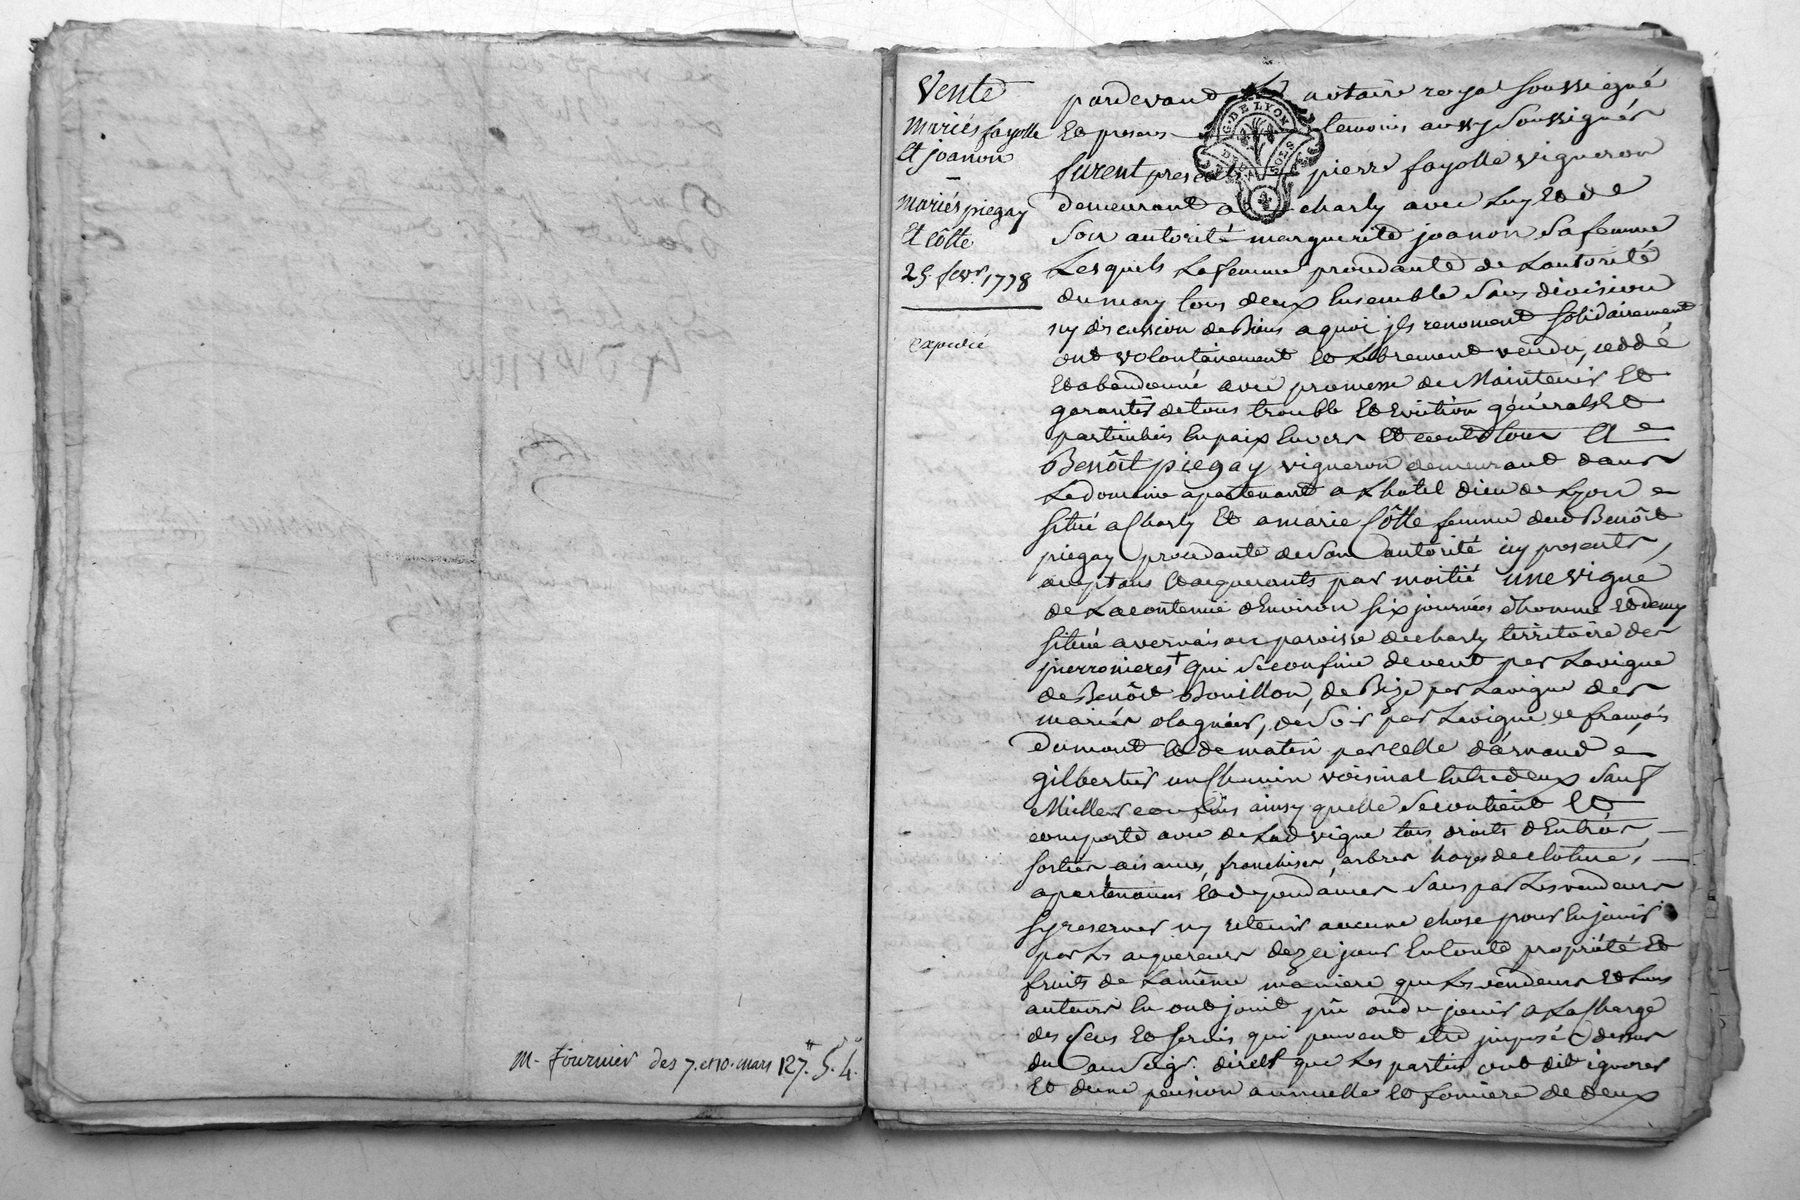 M. Fournier des 7. et 10. mars 127.# 5.s 4.
Vente
mariés fayolle
Et joanon
–
mariés piegay
Et Côtte
25. fevr. 1778
expedié
G. DE LYON
DEUX SOLS
pardevant notaire royal soussigné
Et presens temoins aussy soussignés
furent presents pierre fayolle vigneron
demeurant a charly avec luy Et de
son autorité marguerite joanon sa femme
Lesquels La femme procedante de L'autorité
du mary tous deux Ensemble sans division
ny discussion de Biens a quoi jls renoncent solidairement
ont volontairement et Librement vendu, ceddé
Et abandonné avec promesse de Maintenir Et
garantir de tous trouble Et Eviction général Et
particulier En paix Envers Et contre tous A
Benôit piegay vigneron demeurant dans
Le domaine apartenant a L'hotel dieu de Lyon
situé a Charly Et a marie Côtte femme dud Benôit
piegay procedante de son autorité icy presents,
acceptans Et acquerants par moitié une vigne
de La contenue d'Environ six journées d'homme Et demy
située a vernaison paroisse de charly territoire des
pierronieres + qui se confine de vent par La vigne
de Benôit Bouillon, de Bize par La vigne des
mariés olagnier, de soir par La vigne de françois
Dumont Et de matin par celle d'arnaud
gilbertier un Chemin voisinal Entre deux sauf
Meilleurs confins ainsy quelle se contient Et
comporte avec de Lad vigne tous droits d'Entrées
sorties aisances, franchises, arbres hayes de cloture,
apartenances Et dependances sans par Les vendeurs
sy reserver ny retenir aucune chose pour En jouir
par Les acquereurs dezcejour En toute propriété Et
fruits de La même maniere que Les vendeurs Et Leurs
auteurs En ont jouit pû ou du jouir a La Charge
des Cens Et servis qui peuvent etre jmposés dessus
du au seigr. direct que Les parties ont dit ignorer
Et d'une pension annuelle Et fonciere de deux